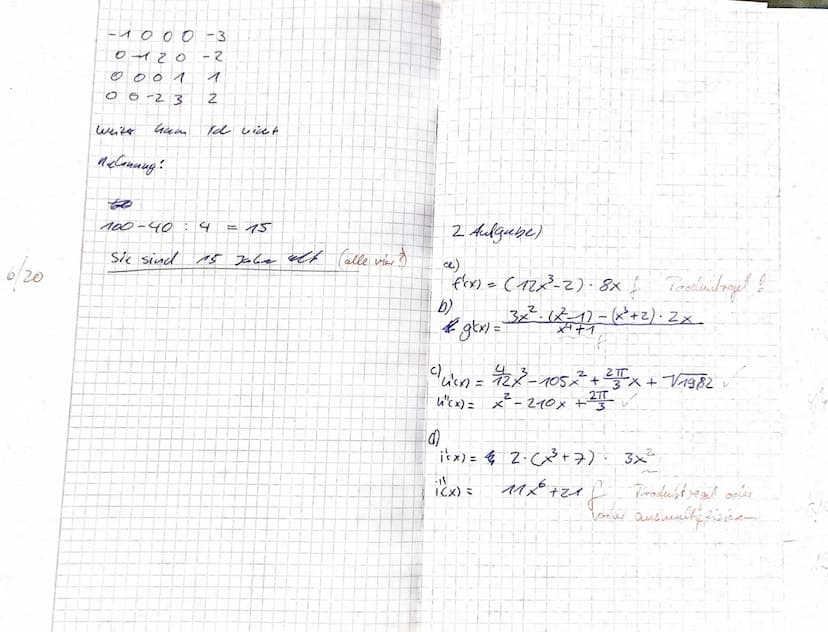 -1 0 0 0 -3
0 -1 2 0 -2
0 0 0 1 1
0 0 -2 3 2
weiter kam Ich nicht
Rechnung:
100-40 : 4 = 15
Sie sind 15 Jahre alt (alle vier?)
6/20
2 Aufgabe)
a)
f'(x) = (12x³-2) · 8x f Produktregel?
b)
g'(x) = (3x² · (x²-1) - (x³+2) · 2x)/(x⁴+1) f
c) u'(x) = 4/12 x³ - 105x² + 2π/3 x + √1982 ✓
u''(x) = x² - 210x + 2π/3 ✓
d)
i'(x) = 2·(x³+7) · 3x²
i''(x) = 11x⁶+21 f Produktregel oder
oder ausmultiplizieren